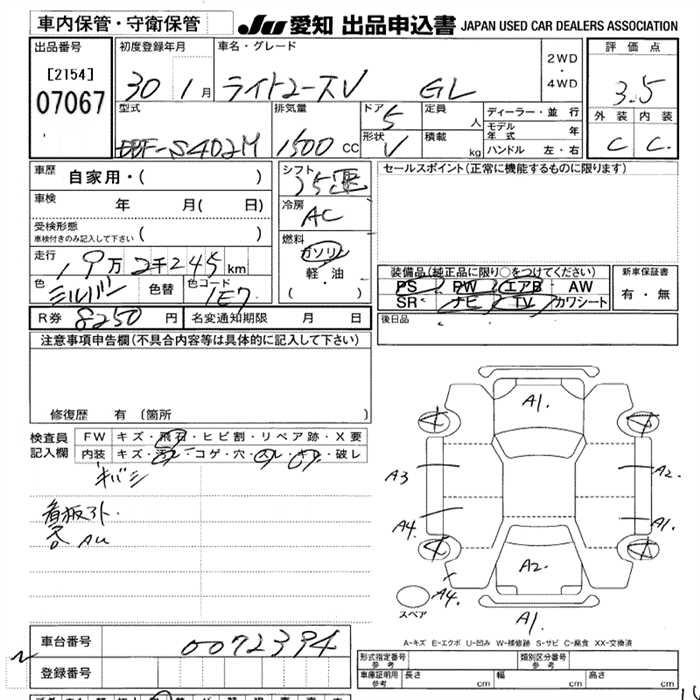 車内保管・守衛保管
JU 愛知 出品申込書 JAPAN USED CAR DEALERS ASSOCIATION
出品番号 初度登録年月 車名・グレード 2WD ・ 4WD 評価点
[2154]
07067 30 1月 ライトエースV GL 3.5
型式 排気量 ドア 5 定員 人 ディーラー・並行 外装 内装
DBF-S402M 1500 cc 形状 V 積載 kg モデル年式 年 C C
ハンドル 左・右
車歴 自家用・( ) シフト セールスポイント(正常に機能するものに限ります)
車検 年 月( 日) 冷房 AC
受検形態
車検付きのみ記入して下さい ( )
走行 19万2千245km 燃料 ガソリン
軽・油
( )
装備品(純正品に限り○をつけてください) 新車保証書
PS PW エアB AW
SR ナビ TV カワシート 有・無
色 シルバー 色替 色コード 1E7
R券 8250 円 名変通知期限 月 日 後日品
注意事項申告欄(不具合内容等は具体的に記入して下さい)
修復歴 有 (箇所
検査員 FW キズ・飛石・ヒビ割・リペア跡・X要
記入欄 内装 キズ・汚レ・コゲ・穴・ ・ ・破レ
看板跡
A1.
A3 A2.
A4. A1.
A2.
A4.
スペア
A1.
A-キズ E-エクボ U-凹み W-補修跡 S-サビ C-腐食 XX-交換済
車台番号 0072394
登録番号
形式指定番号 参考 類別区分番号 参考
車庫証明用 参考 長さ cm 幅 cm 高さ cm